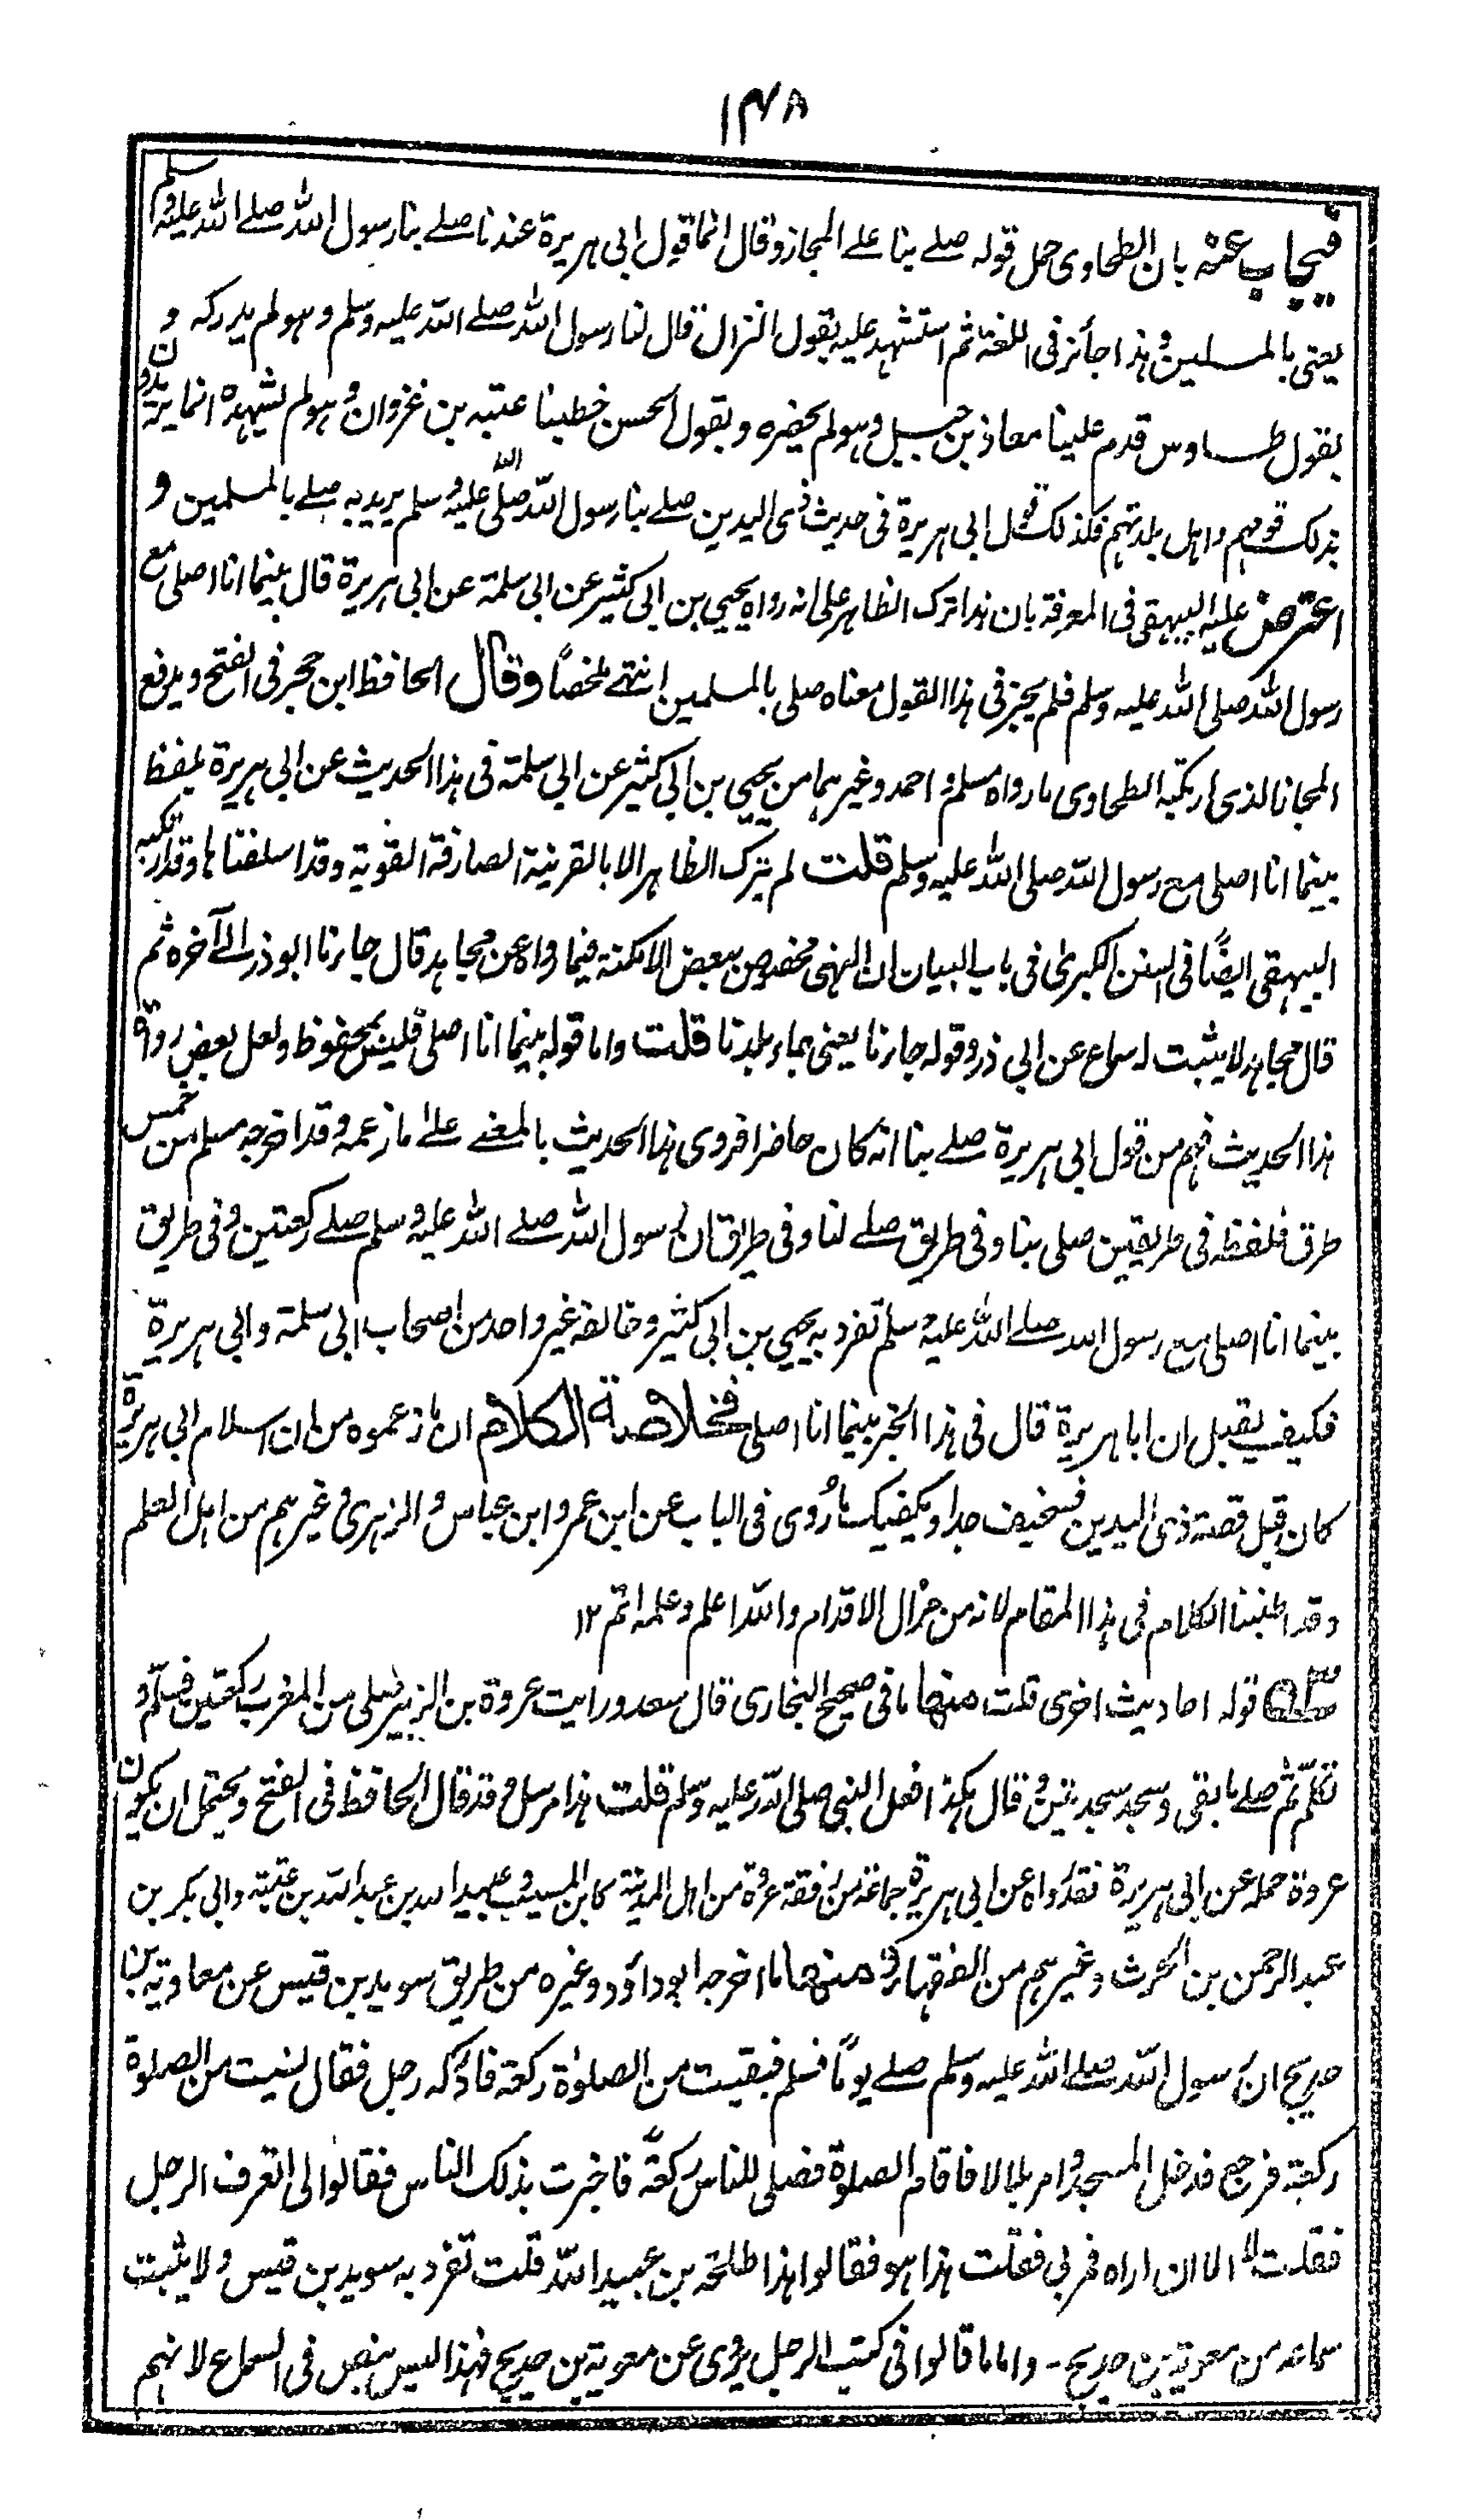 ١٣٨
فيجاب عنه بان الطحاوى حمل قوله صلے بنا علے المجاز وقال انما قول ابى هريرة عندنا صلے بنا رسول الله صلے الله عليه وسلم
يعنى بالمسلمين وهذا جائز فى اللغة ثم استشهد عليه بقول النزال قال لنا رسول الله صلے الله عليه وسلم وهو لم يدركه و
بقول طاوس قدم علينا معاذ بن جبل وهو لم يحضره وبقول الحسن خطبنا عتبة بن غزوان وهو لم يشهده انما يريدون
بذلك قومهم واهل بلدتهم فكذلك قول ابى هريرة فى حديث ذى اليدين صلے بنا رسول الله صلى الله عليه وسلم يريد به صلے بالمسلمين و
اعترض عليه البيهقى فى المعرفة بان هذا ترك الظاهر على انه رواه يحيى بن ابى كثير عن ابى سلمة عن ابى هريرة قال بينما انا اصلى مع
رسول الله صلى الله عليه وسلم فلم يجز فى هذا القول معناه صلى بالمسلمين انتهے ملخصاً وقال الحافظ ابن حجر فى الفتح ويدفع
المجاز الذى ارتكبه الطحاوى ما رواه مسلم واحمد وغيرهما من يحيى بن ابى كثير عن ابى سلمة فى هذا الحديث عن ابى هريرة بلفظ
بينما انا اصلى مع رسول الله صلى الله عليه وسلم قلت لم يترك الظاهر الا بالقرينة الصارفة القوية وقد اسلفناها وقد ارتكبه
البيهقى ايضًا فى السنن الكبرىٰ فى باب البيان ان النهى مخصوص ببعض الامكنة فيما رواه عن مجاهد قال جاءنا ابو ذر الى آخره ثم
قال مجاهد لا يثبت له سماع عن ابى ذر وقوله جاءنا يعنى جاء بلدنا قلت واما قوله بينما انا اصلى فليس بمحفوظ ولعل بعض رواة
هذا الحديث فهم من قول ابى هريرة صلے بنا انه كان حاضرا فروى هذا الحديث بالمعنے علےٰ ما زعمه وقد اخرجه مسلم من خمس
طرق فلفظه فى طريقين صلى بنا وفى طريق صلے لنا وفى طريق ان رسول الله صلے الله عليه وسلم صلے ركعتين وفى طريق
بينما انا اصلى مع رسول الله صلے الله عليه وسلم تفرد به يحيى بن ابى كثير وخالفه غير واحد من اصحاب ابى سلمة وابى هريرة
فكيف يقبل ان ابا هريرة قال فى هذا الخبر بينما انا اصلى فخلاصة الكلام ان ما زعموه من ان اسلام ابى هريرة
كان قبل قصة ذى اليدين فسخيف جدا ويكفيك ما رُوى فى الباب عن ابن عمر وابن عباس والزهرى وغيرهم من اهل العلم
وقد اطنبنا الكلام فى هذا المقام لانه من مزال الاقدام والله اعلم وعلمه اتم ١٢
قوله احاديث اخرى قلت منها ما فى صحيح البخارى قال سعد ورايت عروة بن الزبير صلى من المغرب ركعتين فسلم و
تكلم ثم صلے ما بقى وسجد سجدتين وقال هكذا فعل النبى صلى الله عليه وسلم قلت هذا مرسل وقد قال الحافظ فى الفتح ويحتمل ان يكون
عروة حمله عن ابى هريرة فقد رواه عن ابى هريرة جماعة من رفقة عروة من اهل المدينة كابن المسيب وعبيد الله بن عبد الله بن عتبة وابى بكر بن
عبد الرحمن بن الحرث وغيرهم من الفقهاء ومنها ما اخرجه ابو داؤد وغيره من طريق سويد بن قيس عن معاوية بن
حديج ان رسول الله صلے الله عليه وسلم صلے يوماً فسلم فبقيت من الصلوٰة ركعة فادركه رجل فقال نسيت من الصلوة
ركعة فرجع فدخل المسجد وامر بلالا فاقام الصلوة فصلى للناس ركعةً فاخبرت بذلك الناس فقالوا لى اتعرف الرجل
فقلت لا الا ان اراه فمر بى فقلت هذا هو فقالوا هذا طلحة بن عبيد الله قلت تفرد به سويد بن قيس ولا يثبت
سماعه من معوية بن حديج - واما ما قالوا فى كتب الرجال يروى عن معوية بن حديج فهذا ليس بنص فى السماع لانهم